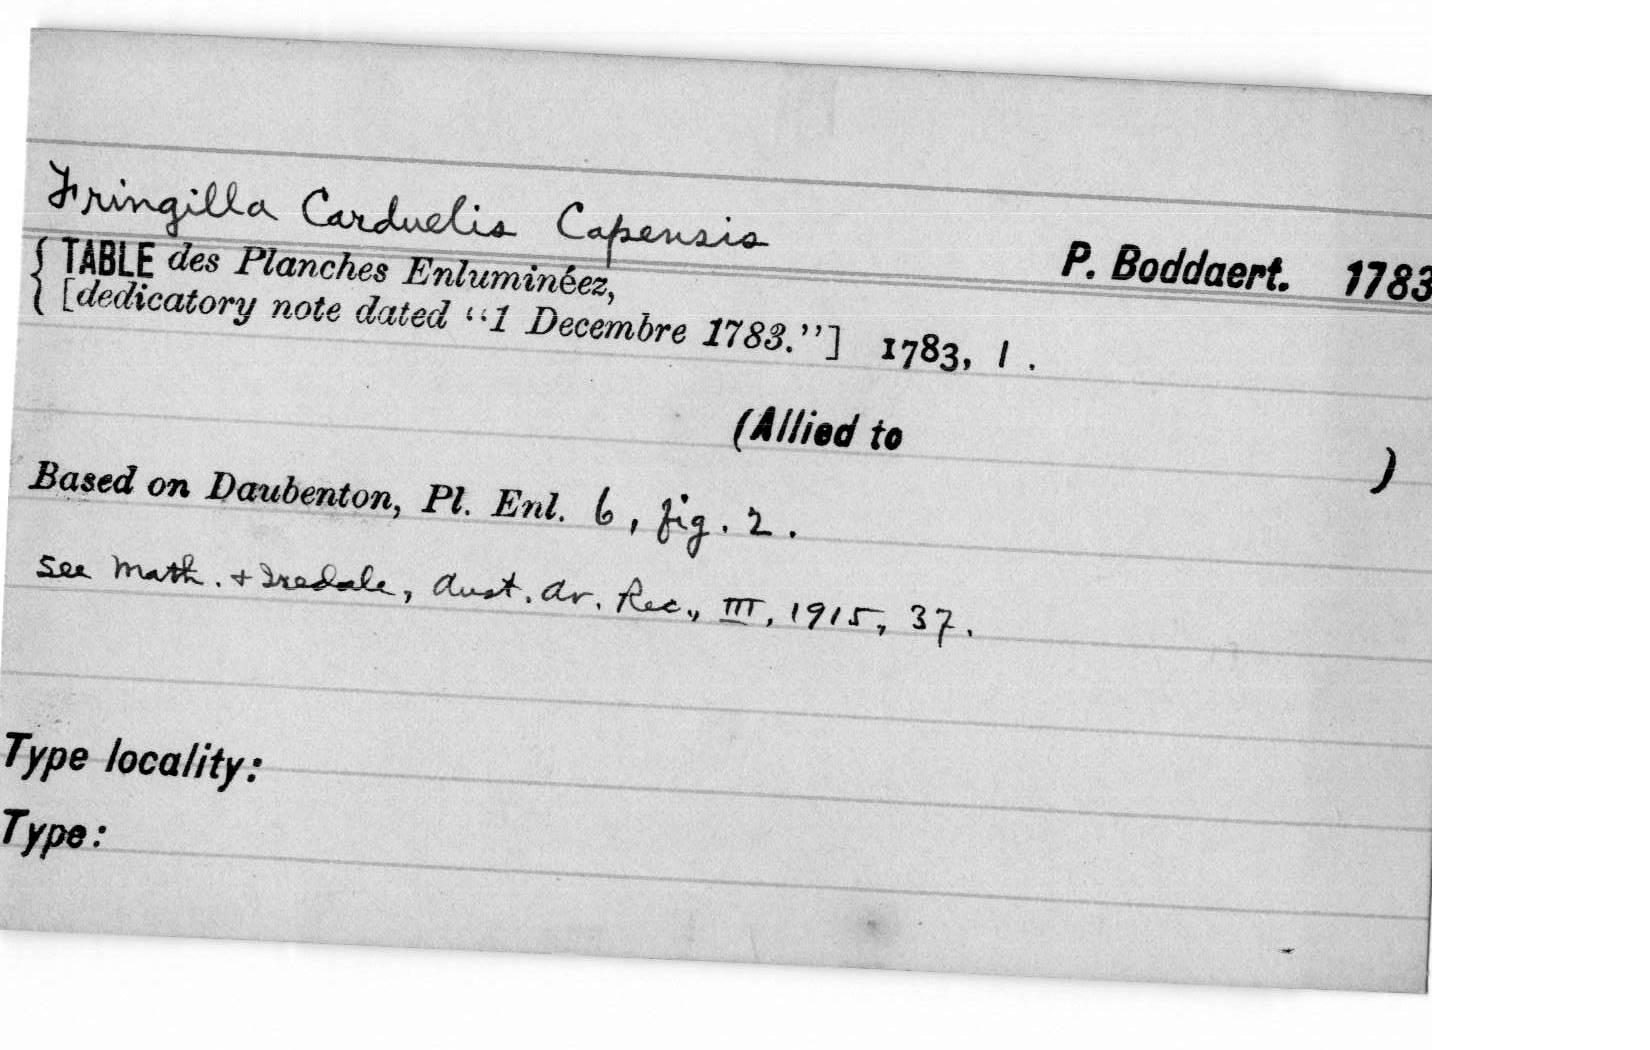 Fringilla Carduelis Capensis
P. Boddaert. 1783
{ TABLE des Planches Enluminéez,
[dedicatory note dated "1 Decembre 1783."] 1783, 1.
(Allied to )
Based on Daubenton, Pl. Enl. 6, fig. 2.
See Math. + Iredale, Aust. Av. Rec., III, 1915, 37.
Type locality:
Type: